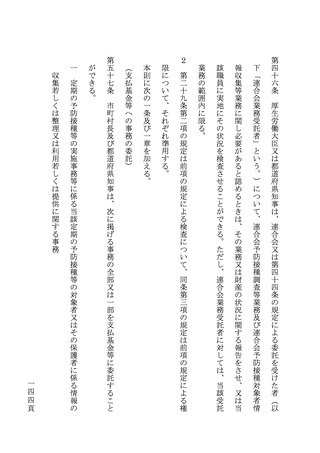 第四十六条　厚生労働大臣又は都道府県知事は、連合会又は第四十四条の規定による委託を受けた者（以
下「連合会業務受託者」という。）について、連合会予防接種調査等業務及び連合会予防接種対象者情
報収集等業務に関し必要があると認めるときは、その業務又は財産の状況に関する報告をさせ、又は当
該職員に実地にその状況を検査させることができる。ただし、連合会業務受託者に対しては、当該受託
業務の範囲内に限る。
２　第二十九条第二項の規定は前項の規定による検査について、同条第三項の規定は前項の規定による権
限について、それぞれ準用する。
本則に次の一条及び一章を加える。
（支払基金等への事務の委託）
第五十七条　市町村長及び都道府県知事は、次に掲げる事務の全部又は一部を支払基金等に委託すること
ができる。
一　定期の予防接種等の実施事務等に係る当該定期の予防接種等の対象者又はその保護者に係る情報の
収集若しくは整理又は利用若しくは提供に関する事務
一四四頁